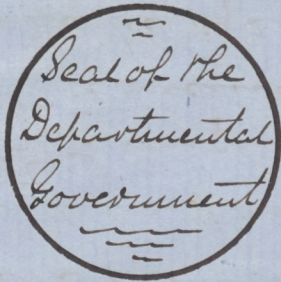 Seal of the
Departmental
Government